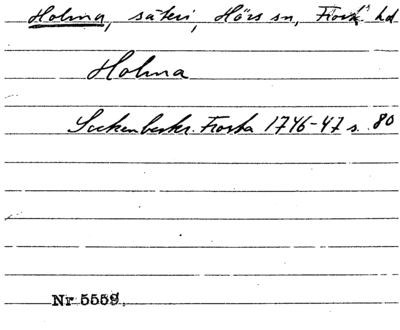 Holma, säteri, Hörs sn, Frosta hd
Holma
Sockenbeskr. Frosta 1746-47 s. 80
Nr 5559.